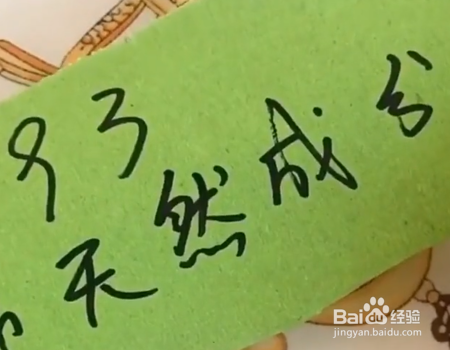 93
天然成分
Baidu经验
jingyan.baidu.com